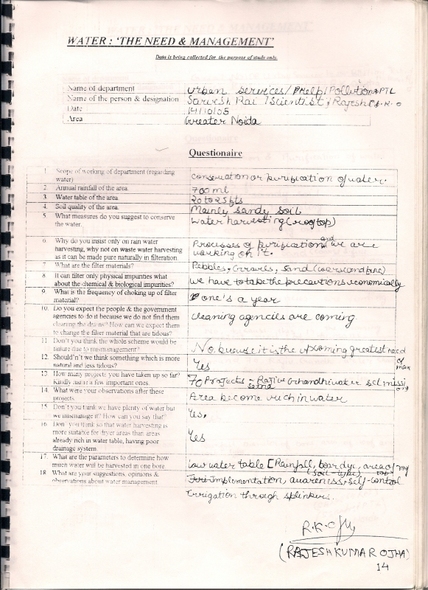 WATER : 'THE NEED & MANAGEMENT'
Data is being collected for the purpose of study only.
Name of department Urban Services/ /Pollution
Name of the person & designation Sarvesh Rai (Scientist), Rajesh
Date 14/10/05
Area Greater Noida
Questionaire
1. Scope of working of department (regarding water) conservation or purification of water.
2. Annual rainfall of the area. 700 ml
3. Water table of the area. 20 to 25 fts
4. Soil quality of the area. Mainly Sandy Soil
5. What measures do you suggest to conserve the water. Water harvesting (rooftop)
6. Why do you insist only on rain water
harvesting, why not on waste water harvesting
as it can be made pure naturally in filteration
Processes of purification and we are
working on it.
7. What are the filter materials? Pebbles, Gravels, Sand (coarse and fine)
8. It can filter only physical impurities what
about the chemical & biological impurities?
we have to take the precautions economically
9. What is the frequency of choking up of filter
material?
one's a year
10. Do you expect the people & the government
agencies to do it because we do not find them
clearing the drains? How can we expect them
to change the filter material that are tedious?
cleaning agencies are coming
11. Don't you think the whole scheme would be
failure due to mismanagement?
No because it is the upcoming greatest need of man
12. Should'n't we think something which is more
natural and less tedious?
Yes
13. How many projects you have taken up so far?
Kindly name a few important ones.
70 Projects : Rajiv Gandhi water
14. What were your observations after these
projects.
Area become rich in water
15. Don't you think we have plenty of water but
we mismanage it? How can you say that?
Yes,
16. Don't you think so that water harvesting is
more suitable for dryer areas than areas
already rich in water table, having poor
drainage system
Yes
17. What are the parameters to determine how
much water will be harvested in one bore
Low water table [Rainfall, bore dye, area of
(soil type)
18. What are your suggestions, opinions &
observations about water management
Implementation, awareness, self-control
irrigation through splinkers.
(RAJESH KUMAR OJHA)
14